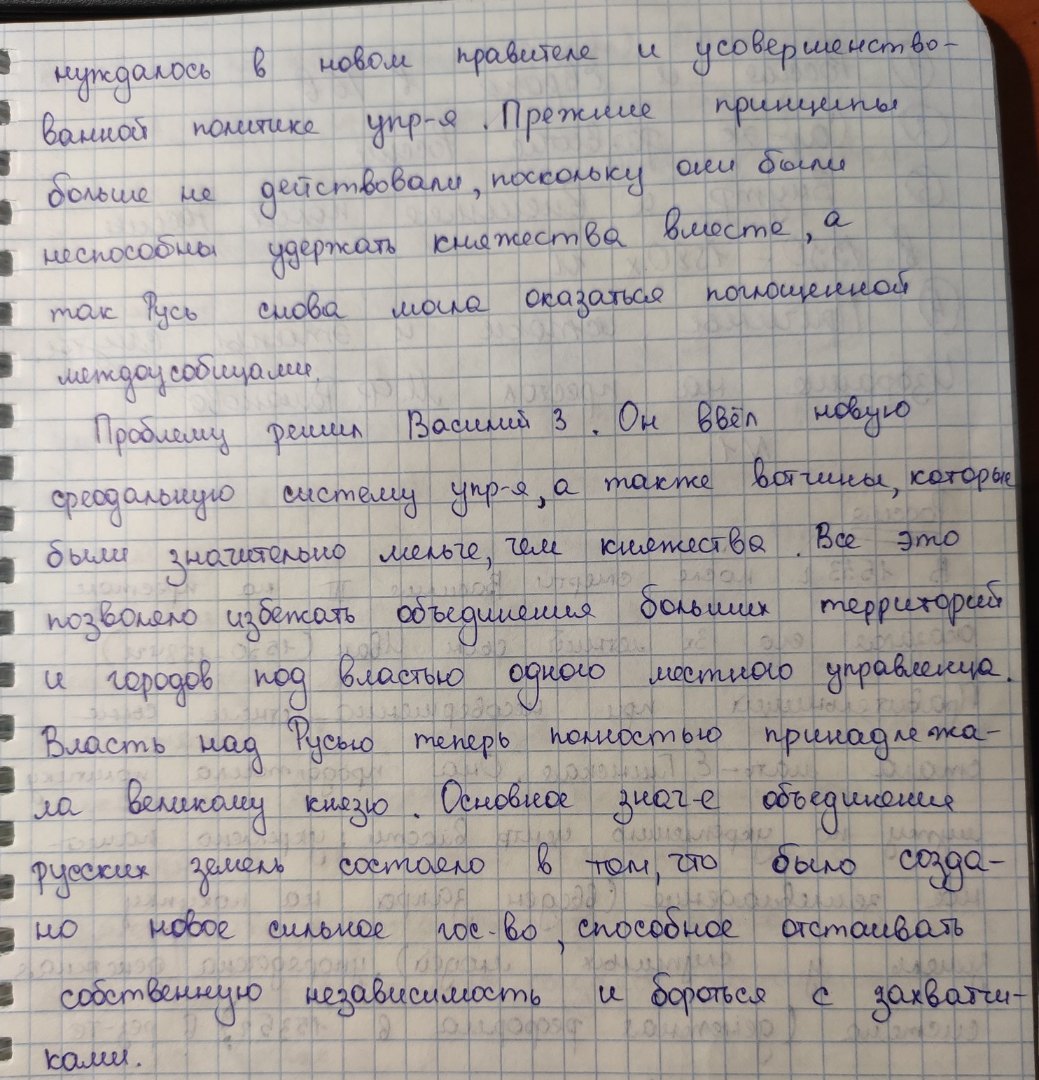 нуждалось в новом правителе и усовершенство-
ванной политике упр-я. Прежние принципы
больше не действовали, поскольку они были
неспособны удержать княжества вместе, а
так Русь снова могла оказаться поглощенной
междоусобицами.
Проблему решил Василий 3. Он ввёл новую
феодальную систему упр-я, а также вотчины, которые
были значительно меньше, чем княжества. Все это
позволяло избежать объединения больших территорий
и городов под властью одного местного управленца.
Власть над Русью теперь полностью принадлежа-
ла великому князю. Основное знач-е объединения
русских земель состояло в том, что было созда-
но новое сильное гос-во, способное отстаивать
собственную независимость и бороться с захватчи-
ками.